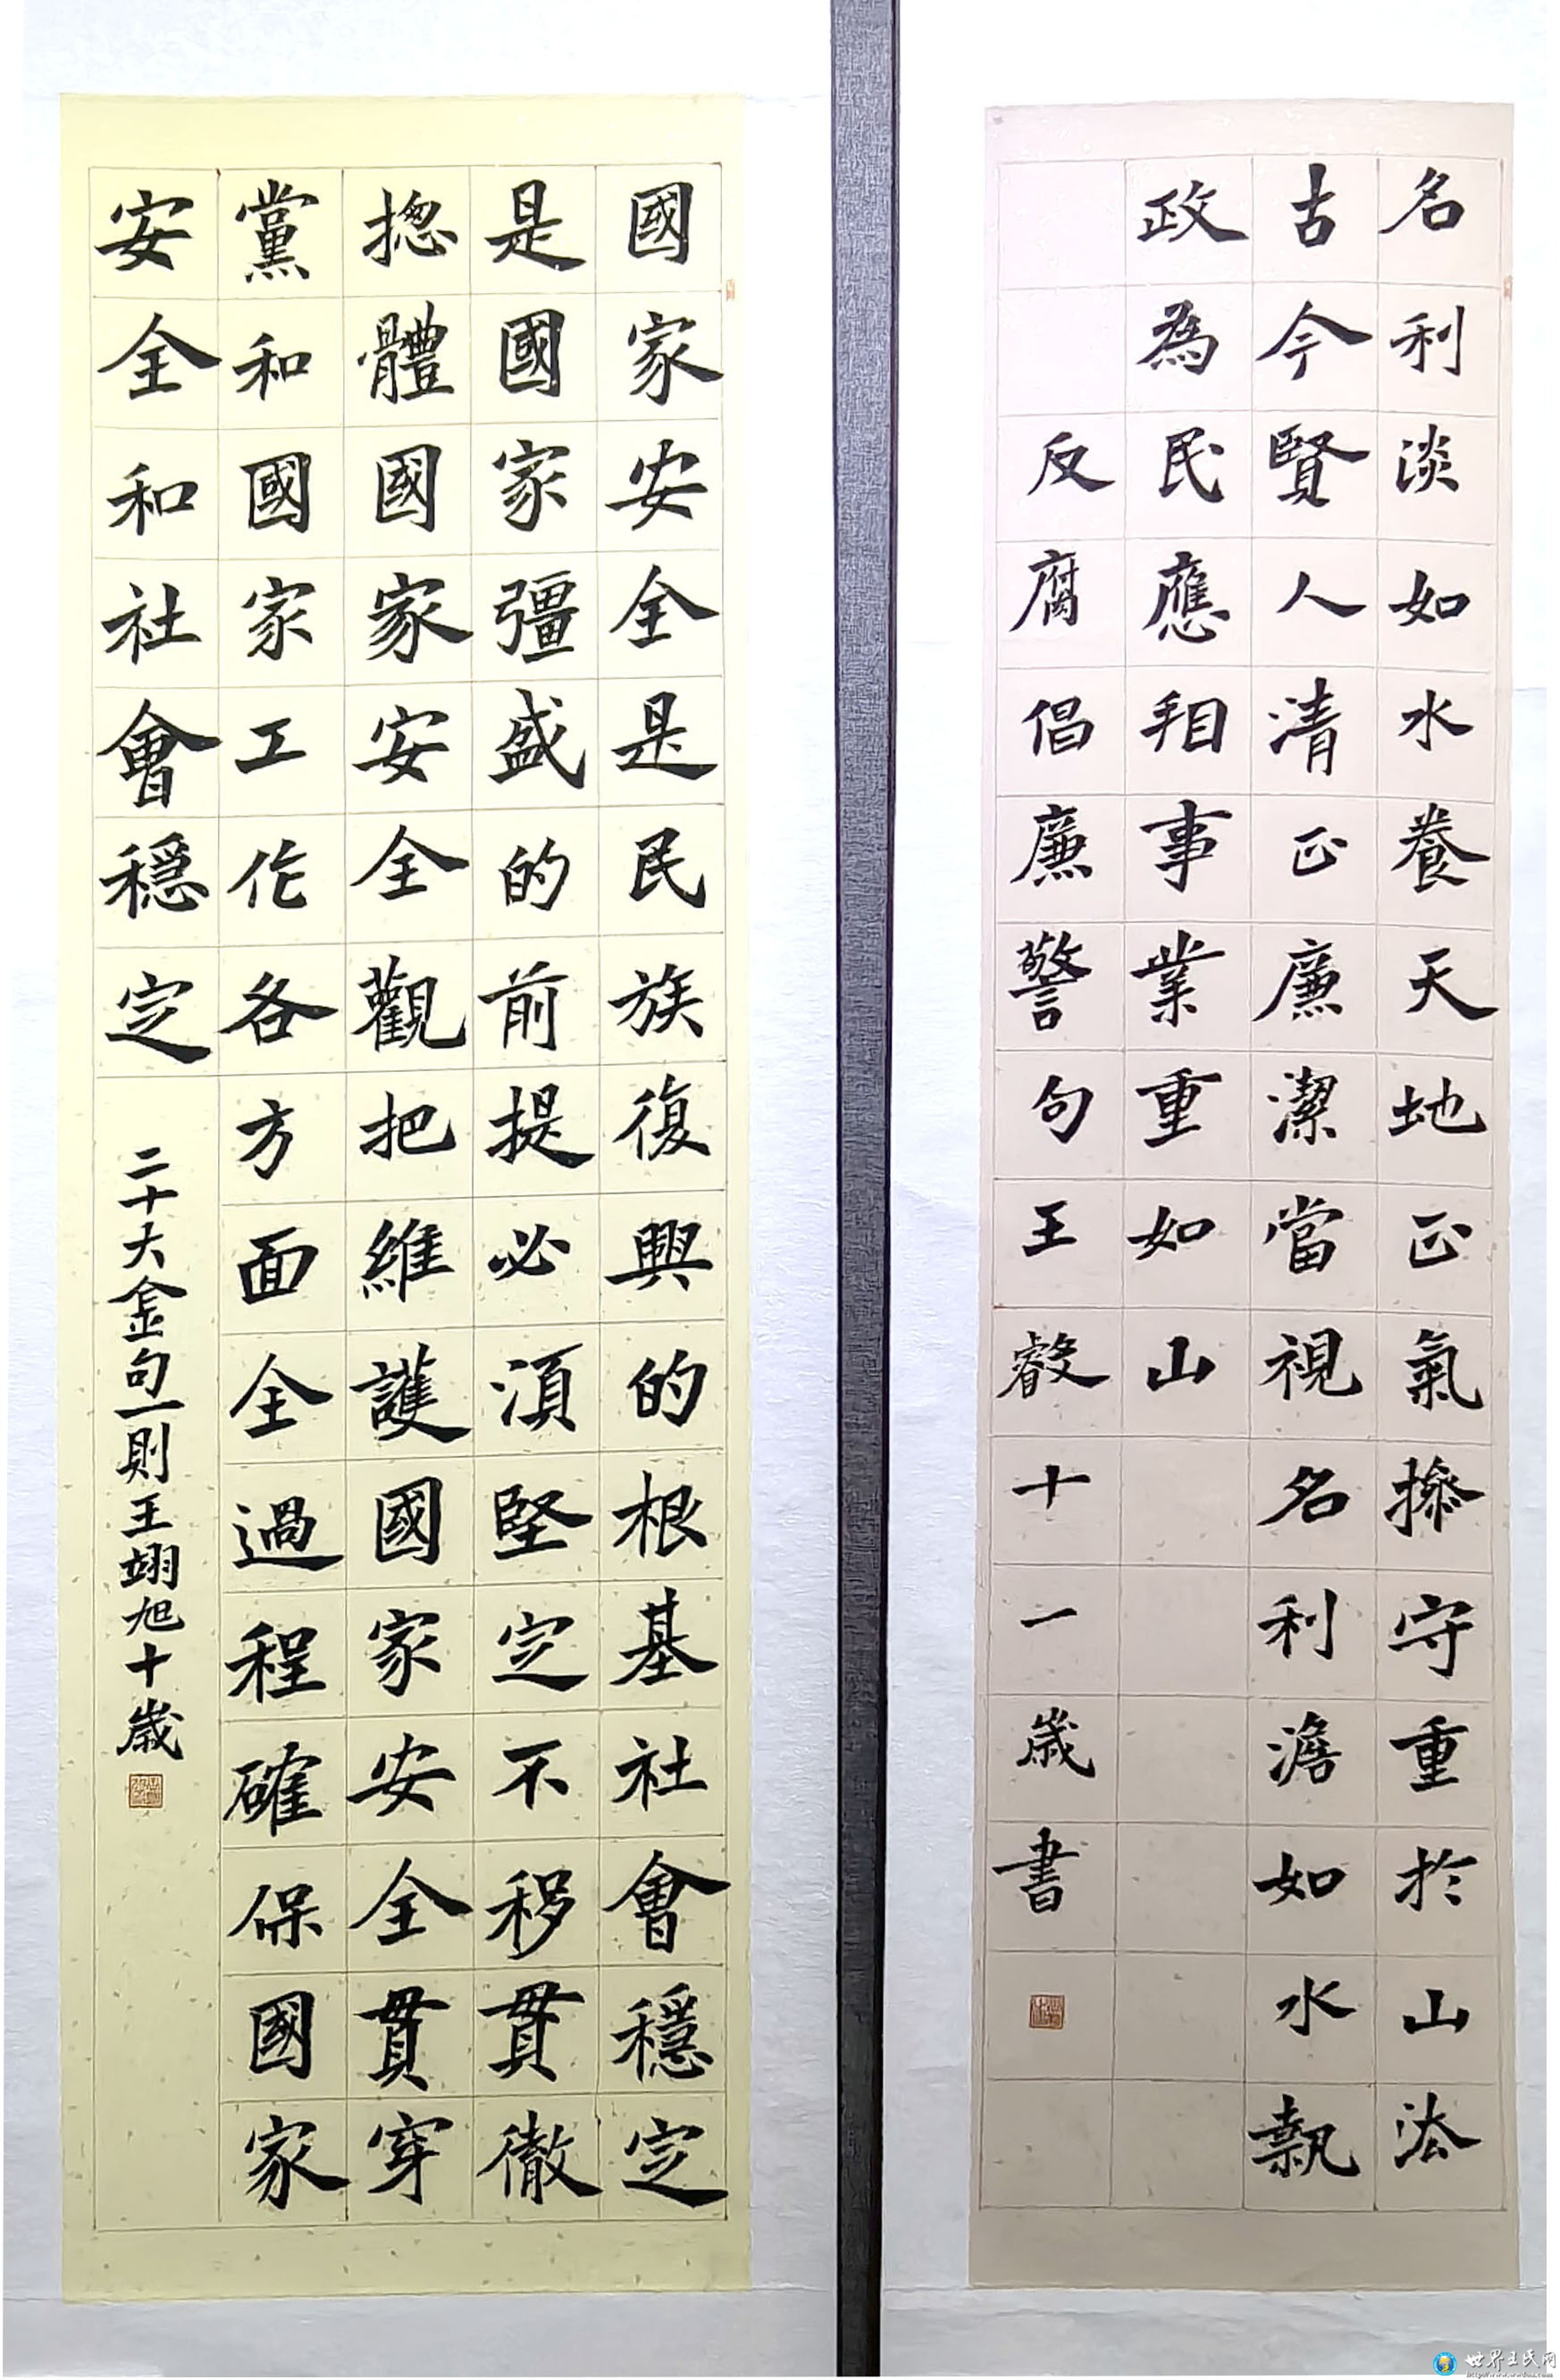 名利淡如水養天地正氣操守重於山法
古今賢人清正廉潔當視名利澹如水執
政為民應相事業重如山
反腐倡廉警句王叡十一歲書
國家安全是民族復興的根基社會穩定
是國家彊盛的前提必須堅定不移貫徹
揔體國家安全觀把維護國家安全貫穿
黨和國家工作各方面全過程確保國家
安全和社會穩定
二十大金句一則王翊旭十歲
世界王氏网